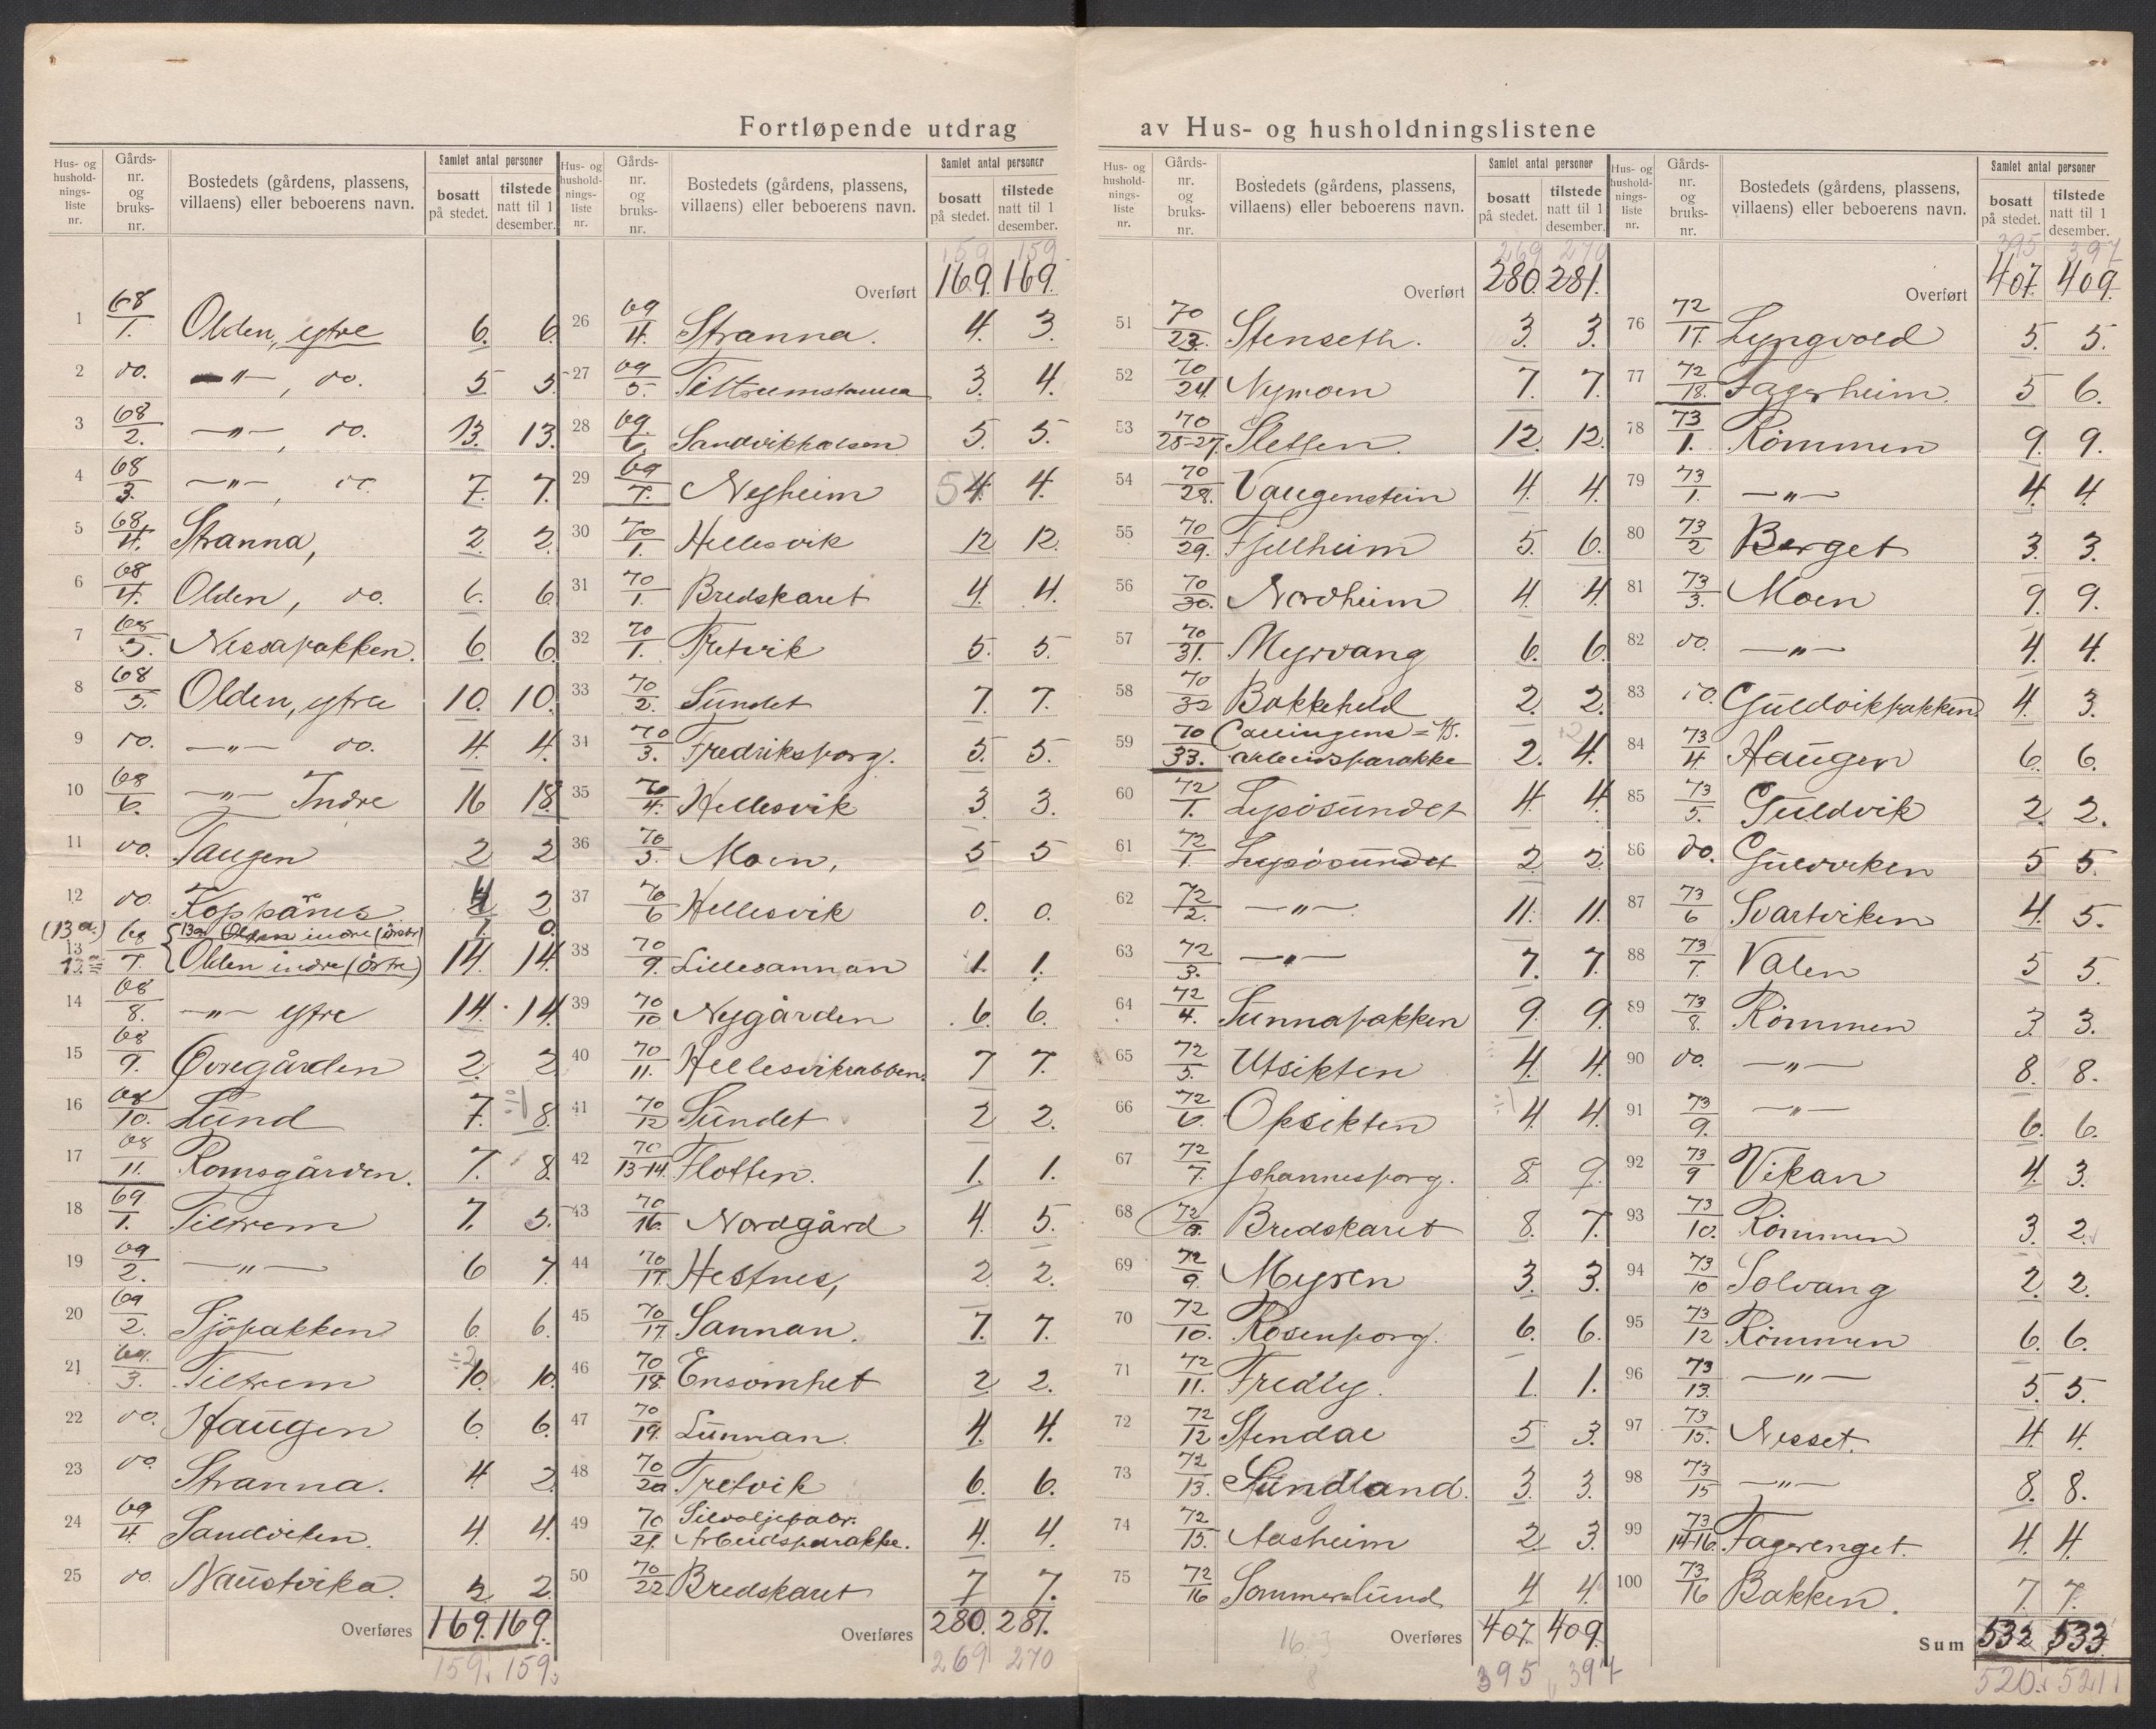 Fortløpende utdrag av Hus- og husholdningslistene
Hus- og hushold-nings-liste nr. Gårds-nr. og bruks-nr. Bostedets (gårdens, plassens, villaens) eller beboerens navn. Samlet antal personer bosatt på stedet. tilstede natt til 1 desember.
1 68/1. Olden, ytre 6. 6.
2 do. —"—, do. 5 5.
3 68/2. —"—, do. 13. 13.
4 68/3. —"—, do. 7. 7.
5 68/4. Stranna, 2. 2.
6 68/4. Olden, do. 6. 6.
7 68/5. Nessabakken. 6. 6.
8 68/5. Olden, ytre 10. 10.
9 do. —"— do. 4. 4.
10 68/6. —"— Indre 16 18.
11 do. Tangen 2 2
12 do. Koppånes 2
(13a.) 13a Olden indre 1. 0.
13 68/7. Olden indre (østre) 14. 14.
14 68/8. —"— ytre 14. 14.
15 68/9. Øvregården 2. 2
16 68/10. Lund 7. ÷1 8.
17 68/11. Romsgården. 7. 8.
18 69/1. Tiltrem 7. 5.
19 69/2. —"— 6 7.
20 69/2. Sjöbakken 6. 6.
21 69/3. Tiltrem ÷2 10. 10.
22 do. Haugen 6. 6.
23 do. Stranna. 4. 2.
24 69/4. Sandviken. 4. 4.
25 do. Naustvika. 2 2.
Overføres 169. 169.
159. 159.
Hus- og hushold-nings-liste nr. Gårds-nr. og bruks-nr. Bostedets (gårdens, plassens, villaens) eller beboerens navn. Samlet antal personer bosatt på stedet. tilstede natt til 1 desember.
159 159.
Overført 169. 169.
26 69/4. Stranna. 4. 3.
27 69/5. Tiltremstranna 3. 4.
28 69/6. Sandvikholsen 5. 5.
29 69/7. Nyheim 5 4. 4.
30 70/1. Hellesvik 12 12.
31 70/1. Bredskaret 4. 4.
32 70/1. Tretvik 5. 5.
33 70/2. Sundet 7. 7.
34 70/3. Fredriksborg. 5. 5.
35 70/4. Hellesvik 3. 3.
36 70/5. Moen, 5 5
37 70/6 Hellesvik 0. 0.
38 70/9. Lillesannan 1. 1.
39 70/10 Nygården 6. 6.
40 70/11. Hellesvikrabben. 7 7.
41 70/12 Sundet 2 2.
42 70/13-14. Flotten. 1. 1.
43 70/16. Nordgård 4. 5.
44 70/17. Hestnes, 2. 2.
45 70/17. Sannan. 7. 7.
46 70/18. Ensomhet 2. 2.
47 70/19. Lunnan. 4. 4.
48 70/20 Tretvik 6. 6.
49 70/21. Sildoljefabr. Arbeidsbarakke. 4. 4.
50 70/22 Bredskaret 7 7.
Overføres 280. 281.
269 270
Hus- og hushold-nings-liste nr. Gårds-nr. og bruks-nr. Bostedets (gårdens, plassens, villaens) eller beboerens navn. Samlet antal personer bosatt på stedet. tilstede natt til 1 desember.
269 270
Overført 280. 281.
51 70/23. Stenseth. 3. 3.
52 70/24. Nymoen 7. 7.
53 70/25-27. Sletten. 12. 12.
54 70/28. Vaugenstein 4. 4.
55 70/29. Fjellheim 5. 6.
56 70/30. Nordheim 4. 4.
57 70/31. Myrvang 6. 6.
58 70/32 Bakkeheld 2. 2.
59 70/33. arbeidsbarakke 2. 4.
60 72/1. Lysösundet 4. 4.
61 72/1. Lysösundet 2. 2.
62 72/2. —"—. 11. 11.
63 72/3. —"— 7. 7.
64 72/4. Sunnabakken 9. 9.
65 72/5. Utsikten ÷ 4. 4.
66 72/6. Opsikten ÷1 4. 4.
67 72/7. Johannesborg. 8. 9.
68 72/8. Bredskaret 8. 7.
69 72/9. Myren 3. 3.
70 72/10. Rosenborg. 6. 6.
71 72/11. Fredly. 1. 1.
72 72/12 Stendal 5 3.
73 72/13. Sundland. 3. 3.
74 72/15. Aasheim 2. 3.
75 72/16 Sommerlund 4. 4.
Overføres 407. 409.
16.3
8
395 397
Hus- og hushold-nings-liste nr. Gårds-nr. og bruks-nr. Bostedets (gårdens, plassens, villaens) eller beboerens navn. Samlet antal personer bosatt på stedet. tilstede natt til 1 desember.
395 397
Overført 407. 409.
76 72/17. Lyngvold 5. 5.
77 72/18. Fagerheim. 5 6.
78 73/1. Römmen 9. 9.
79 73/1. —"— 4. 4.
80 73/2 Berget 3. 3.
81 73/3. Moen 9. 9.
82 do. —"— 4. 4.
83 do. Guldvikbakken 4. 3.
84 73/4 Haugen 6. 6.
85 73/5. Guldvik 2. 2.
86 do. Guldviken 5 5.
87 73/6 Svartviken 4. 5.
88 73/7. Valen 5 5.
89 73/8. Römmen 3. 3.
90 do. —"— 8. 8.
91 73/9. —"— 6. 6.
92 73/9 Vikan 4. 3.
93 73/10. Römmen 3. 2.
94 73/10 Solvang 2. 2.
95 73/12 Römmen 6. 6.
96 73/13. —"— 5. 5.
97 73/15. Nesset. 4. 4.
98 73/15 —"— 8. 8.
99 73/14-16. Fagerenget. 4. 4.
100 73/16 Bakken. 7. 7.
Sum 532 533.
520. 521